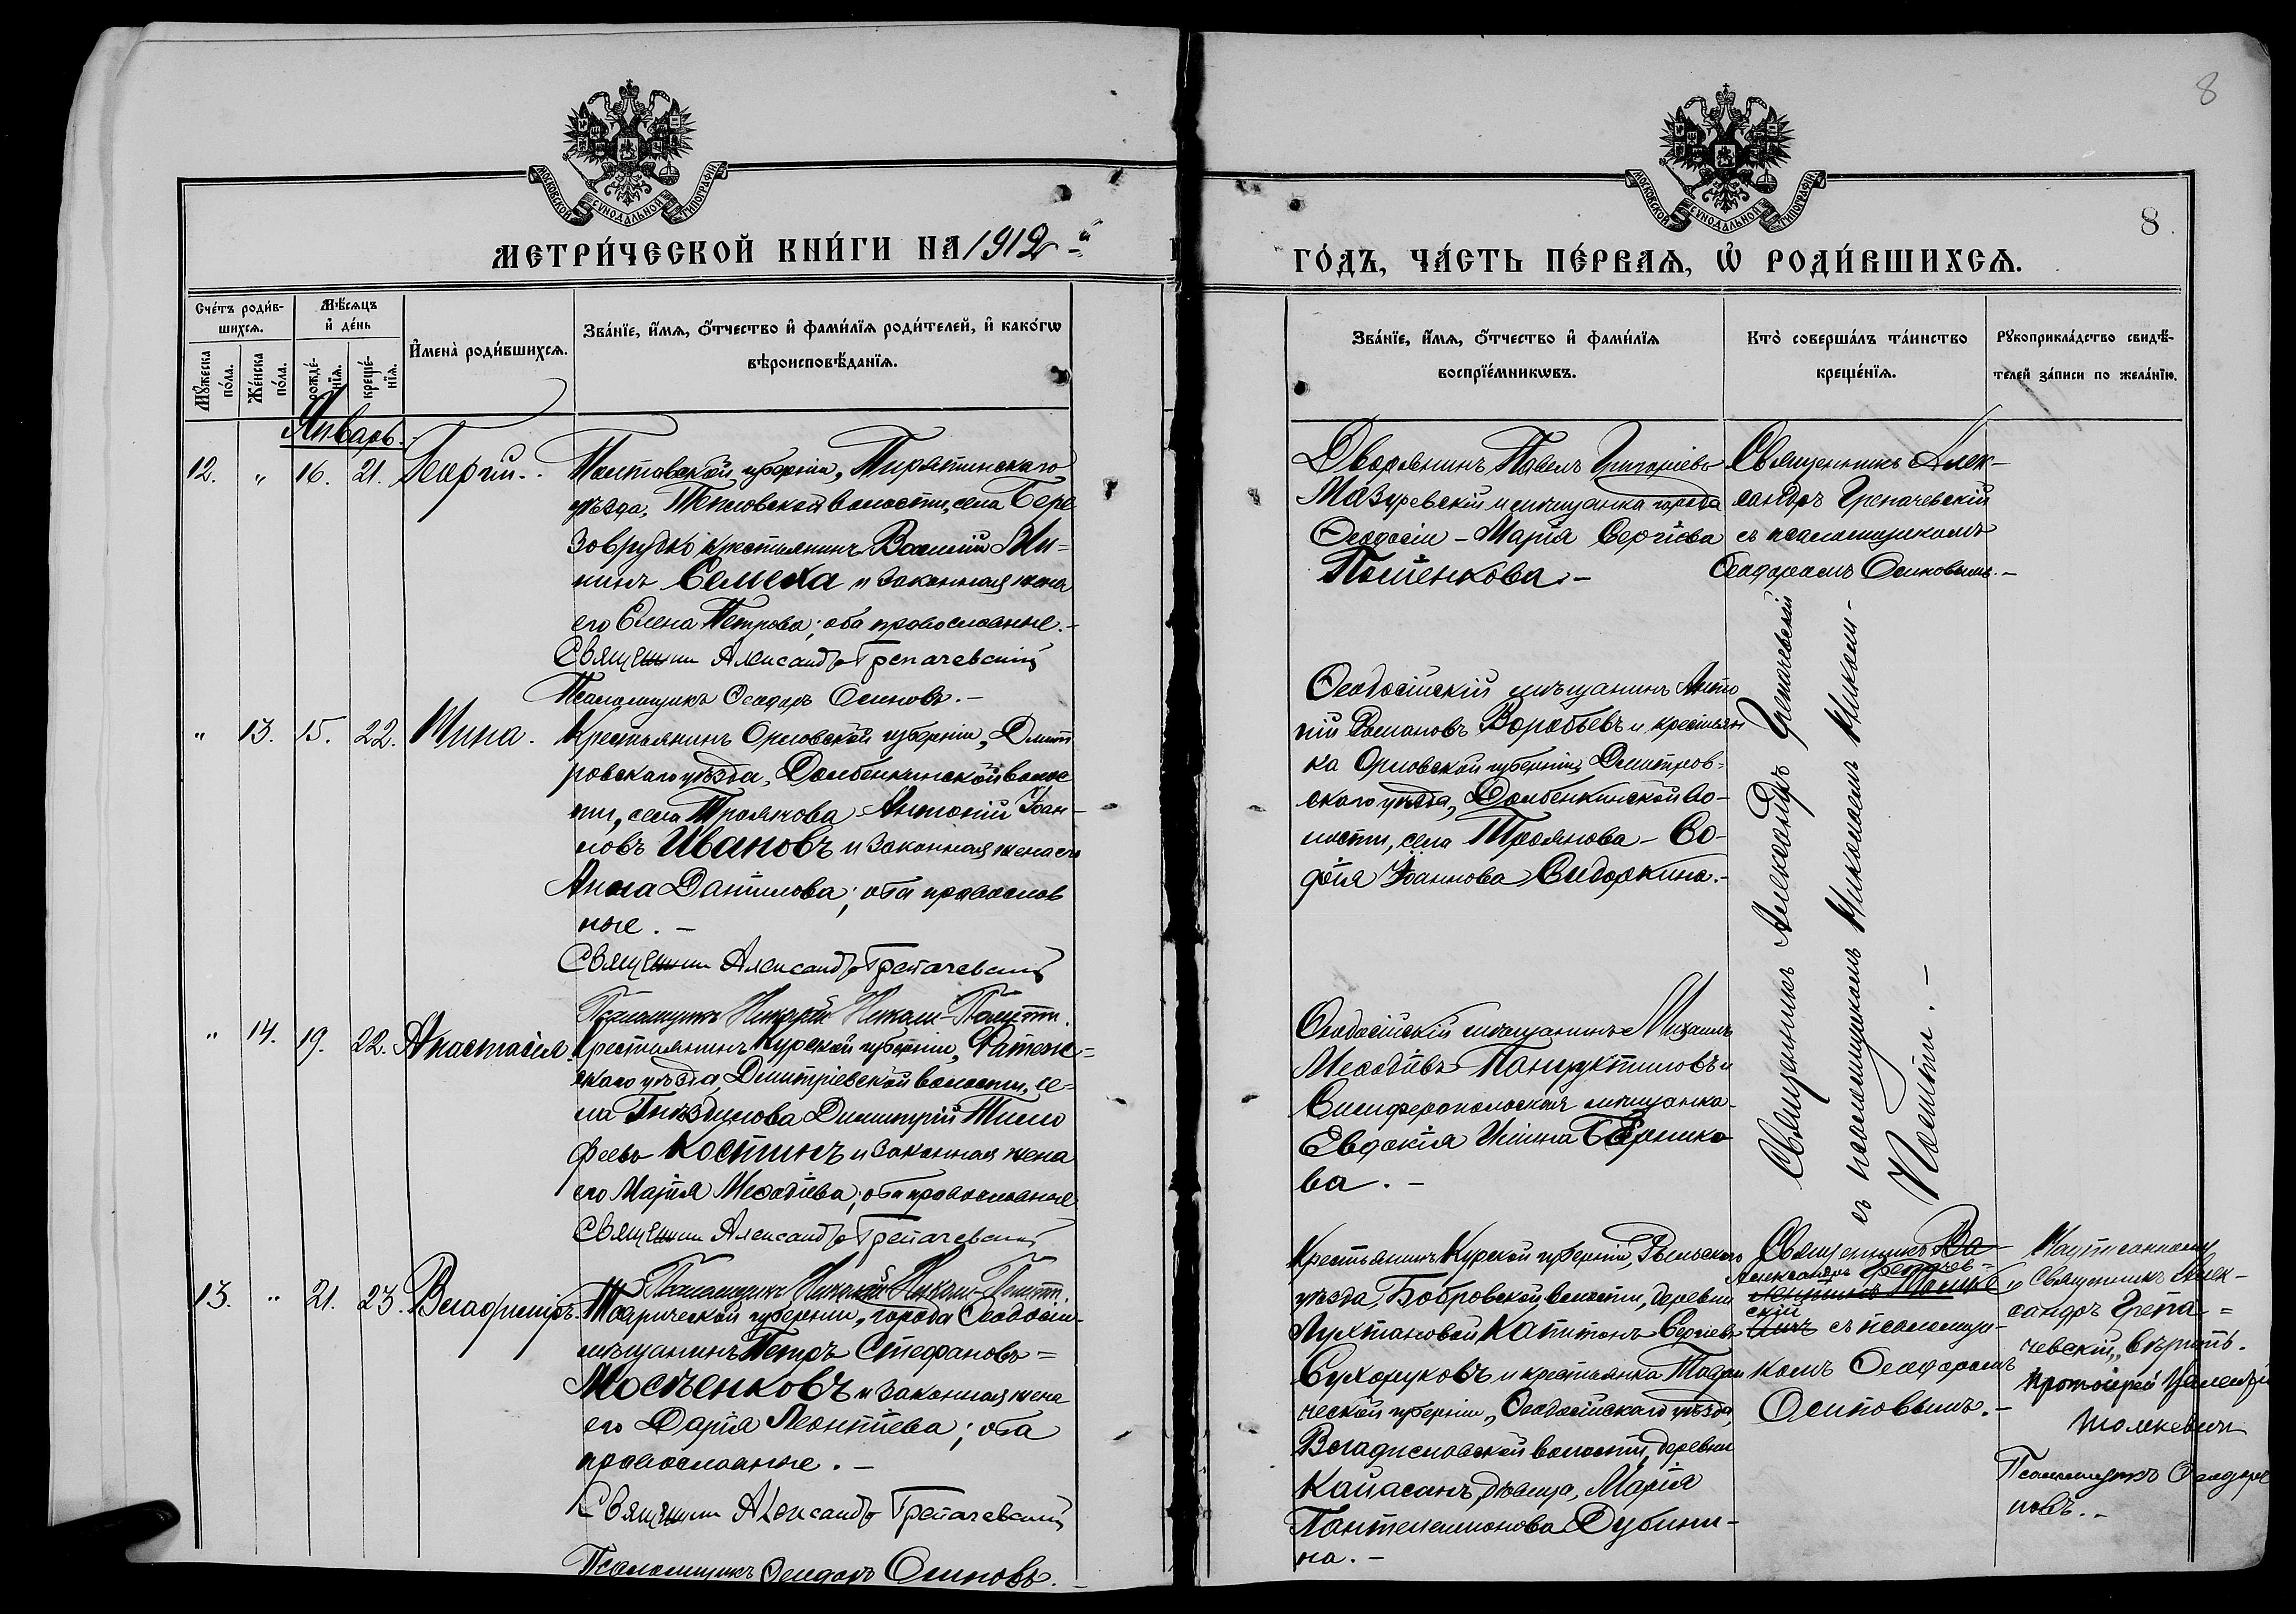 8
МОСКОВСКОЙ СУНОДАЛЬНОЙ ТИПОГРАФІИ
МОСКОВСКОЙ СУНОДАЛЬНОЙ ТИПОГРАФІИ
8.
МЕТРИ́ЧЕСКОЙ КНИ́ГИ НА 1912 й
ГО́ДЪ, ЧА́СТЬ ПЕ́РВАѦ, Ѡ҆ РОДИ́ВШИХСѦ.
Сче́тъ роди́в-
шихсѧ.
Мꙋжеска по́ла.
Же́нска по́ла.
Мѣ́сѧцъ
и҆ де́нь
рожде́-
нїѧ.
креще́-
нїѧ.
И҆мена̀ роди́вшихсѧ.
Зва́нїе, и҆́мѧ, ѻ҆́тчество и҆ фами́лїѧ роди́телей, и҆ како́гѡ
вѣроисповѣ́данїѧ.
Зва́нїе, и҆́мѧ, ѻ҆́тчество и҆ фами́лїѧ
воспрїе́мникѡвъ.
Кто̀ соверша́лъ та́инство
креще́нїѧ.
Рꙋкоприкла́дство свидѣ́-
телей за́писи по жела́нїю.
Январь.
12. " 16. 21. Георгій.
Полтавской губерніи, Пирятинскаго
уѣзда, Теплов­ской волости, села Бере
зоврудки крестьянинъ Василій Ми-
нинъ Семеха и законная жена
его Елена Петрова; оба православные.-
Священник Александр Грепачевскій
Псаломщикъ Ѳеодоръ Осиповъ.-
Дворянинъ Павелъ Григоріевъ
Мазуревскій и мѣщанка города
Ѳеодосіи - Марія Сергіева
Священникъ Алек-
сандръ Грепачевскій
съ псаломщикомъ
Ѳеодоромъ Осиповымъ.-
" 13. 15. 22. Нина.
Крестьянинъ Орловской губерніи, Дмит
ровскаго уѣзда, Долбенкинской волос
ти, села Троянова Антоній Іоан-
новъ Ивановъ и законная жена его
Анна Даніилова; оба православ
ные.-
Священник Александр Грепачевскій
Ѳеодосійскій мѣщанинъ Анто
ній Романовъ Воробьевъ и крестьян
ка Орловской губерніи, Дмитров-
скаго уѣзда, Долбенкинской во-
лости, села Троянова - Со-
фія Іоаннова Сидоркина.-
Священникъ Александръ Грепачевскій
съ псаломщикомъ Николаемъ Николи-
" 14. 19. 22. Анастасія
Крестьянинъ Курской губерніи, Фатеж-
скаго уѣзда, Димитріевской волости, се-
ла Гнѣздилова Димитрій Тимо
феевъ Костинъ и законная жена
его Марія Меѳодіева; оба православные
Священник Александр Грепачевскій
Ѳеодосійскій мѣщанинъ Михаилъ
Меѳодіевъ и
Симферопольская мѣщанка
Евдокія
ва.-
13. " 21. 23. Владиміръ.
Таврической губерніи, города Ѳеодосіи
мѣщанинъ Петръ Стефановъ
Мосъенковъ и законная жена
его Дарія Леонтіева; оба
православные.-
Священник Александр Грепачевскій
Псаломщикъ Ѳеодоръ Осиповъ.-
Крестьянинъ Курской губерніи, Рыльскаго
уѣзда, Бобровской волости, деревни
Капитонъ Сергіевъ
Сухоруковъ и крестьянка Таври
ческой губерніи, Ѳеодосійскаго уѣзда,
Владиславской волости, деревни
дѣвица, Марія
Пантелеимонова Дубини-
на.-
Священникъ Ва
Александръ Грепачев-
скій
съ псаломщи-
комъ Ѳеодоромъ
Осиповымъ.-
Надписанному
"Священникъ Алек-
сандръ Грепа-
чевскій" вѣрить.
Протоіерей
Псаломщикъ Ѳеодоръ
повъ.-